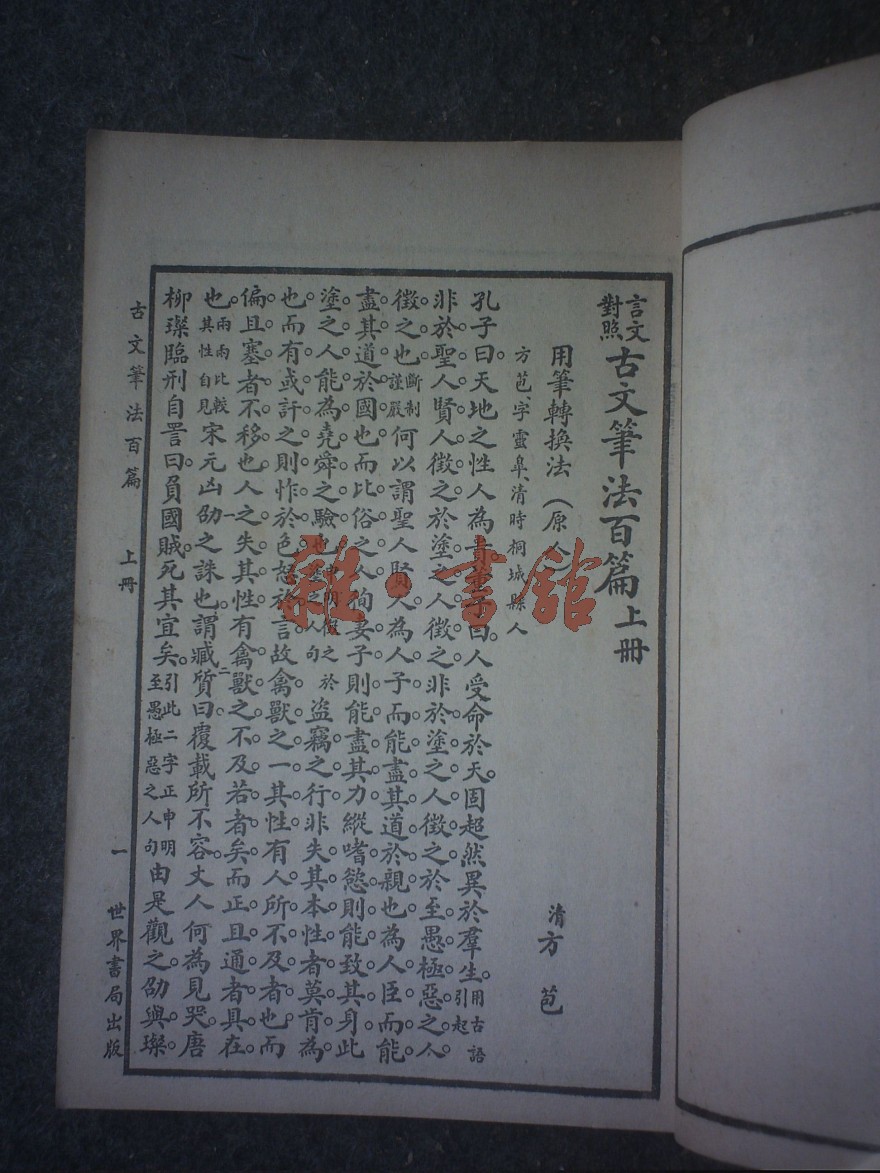 言文對照古文筆法百篇上冊
用筆轉換法（原人）
清方苞
方苞、字靈皐、清時桐城縣人
孔子曰。天地之性人為貴。董子曰。人受命於天。固超然異於羣生。用古語引起
非於聖人賢人徵之。於塗之人徵之。非於塗之人徵之。於至愚極惡之人
徵之也。斷制謹嚴何以謂聖人賢人。為人子而能盡其道於親也。為人臣而能
盡其道於國也。而比俗之人。徇妻子則能盡其力。縱嗜慾則能致其身。此
塗之人能為堯舜之驗也。於塗之人句盜竊之行。非失其本性者。莫肯為
也。而有或訐之。則怍於色。怒於言。故禽獸之一其性。有人所不及者也。而
偏且塞者不移也。人之失其性。有禽獸之不及若者矣。而正且通者具在
也。兩兩比較其性自見宋元凶劭之誅也。一謂臧質曰。二覆載所不容。丈人何為見哭。唐
柳璨臨刑自詈曰。負國賊。死其宜矣。引此二字正申明至愚極惡之人句由是觀之。劭與璨。
古文筆法百篇 上冊 一 世界書局出版
雜·書館